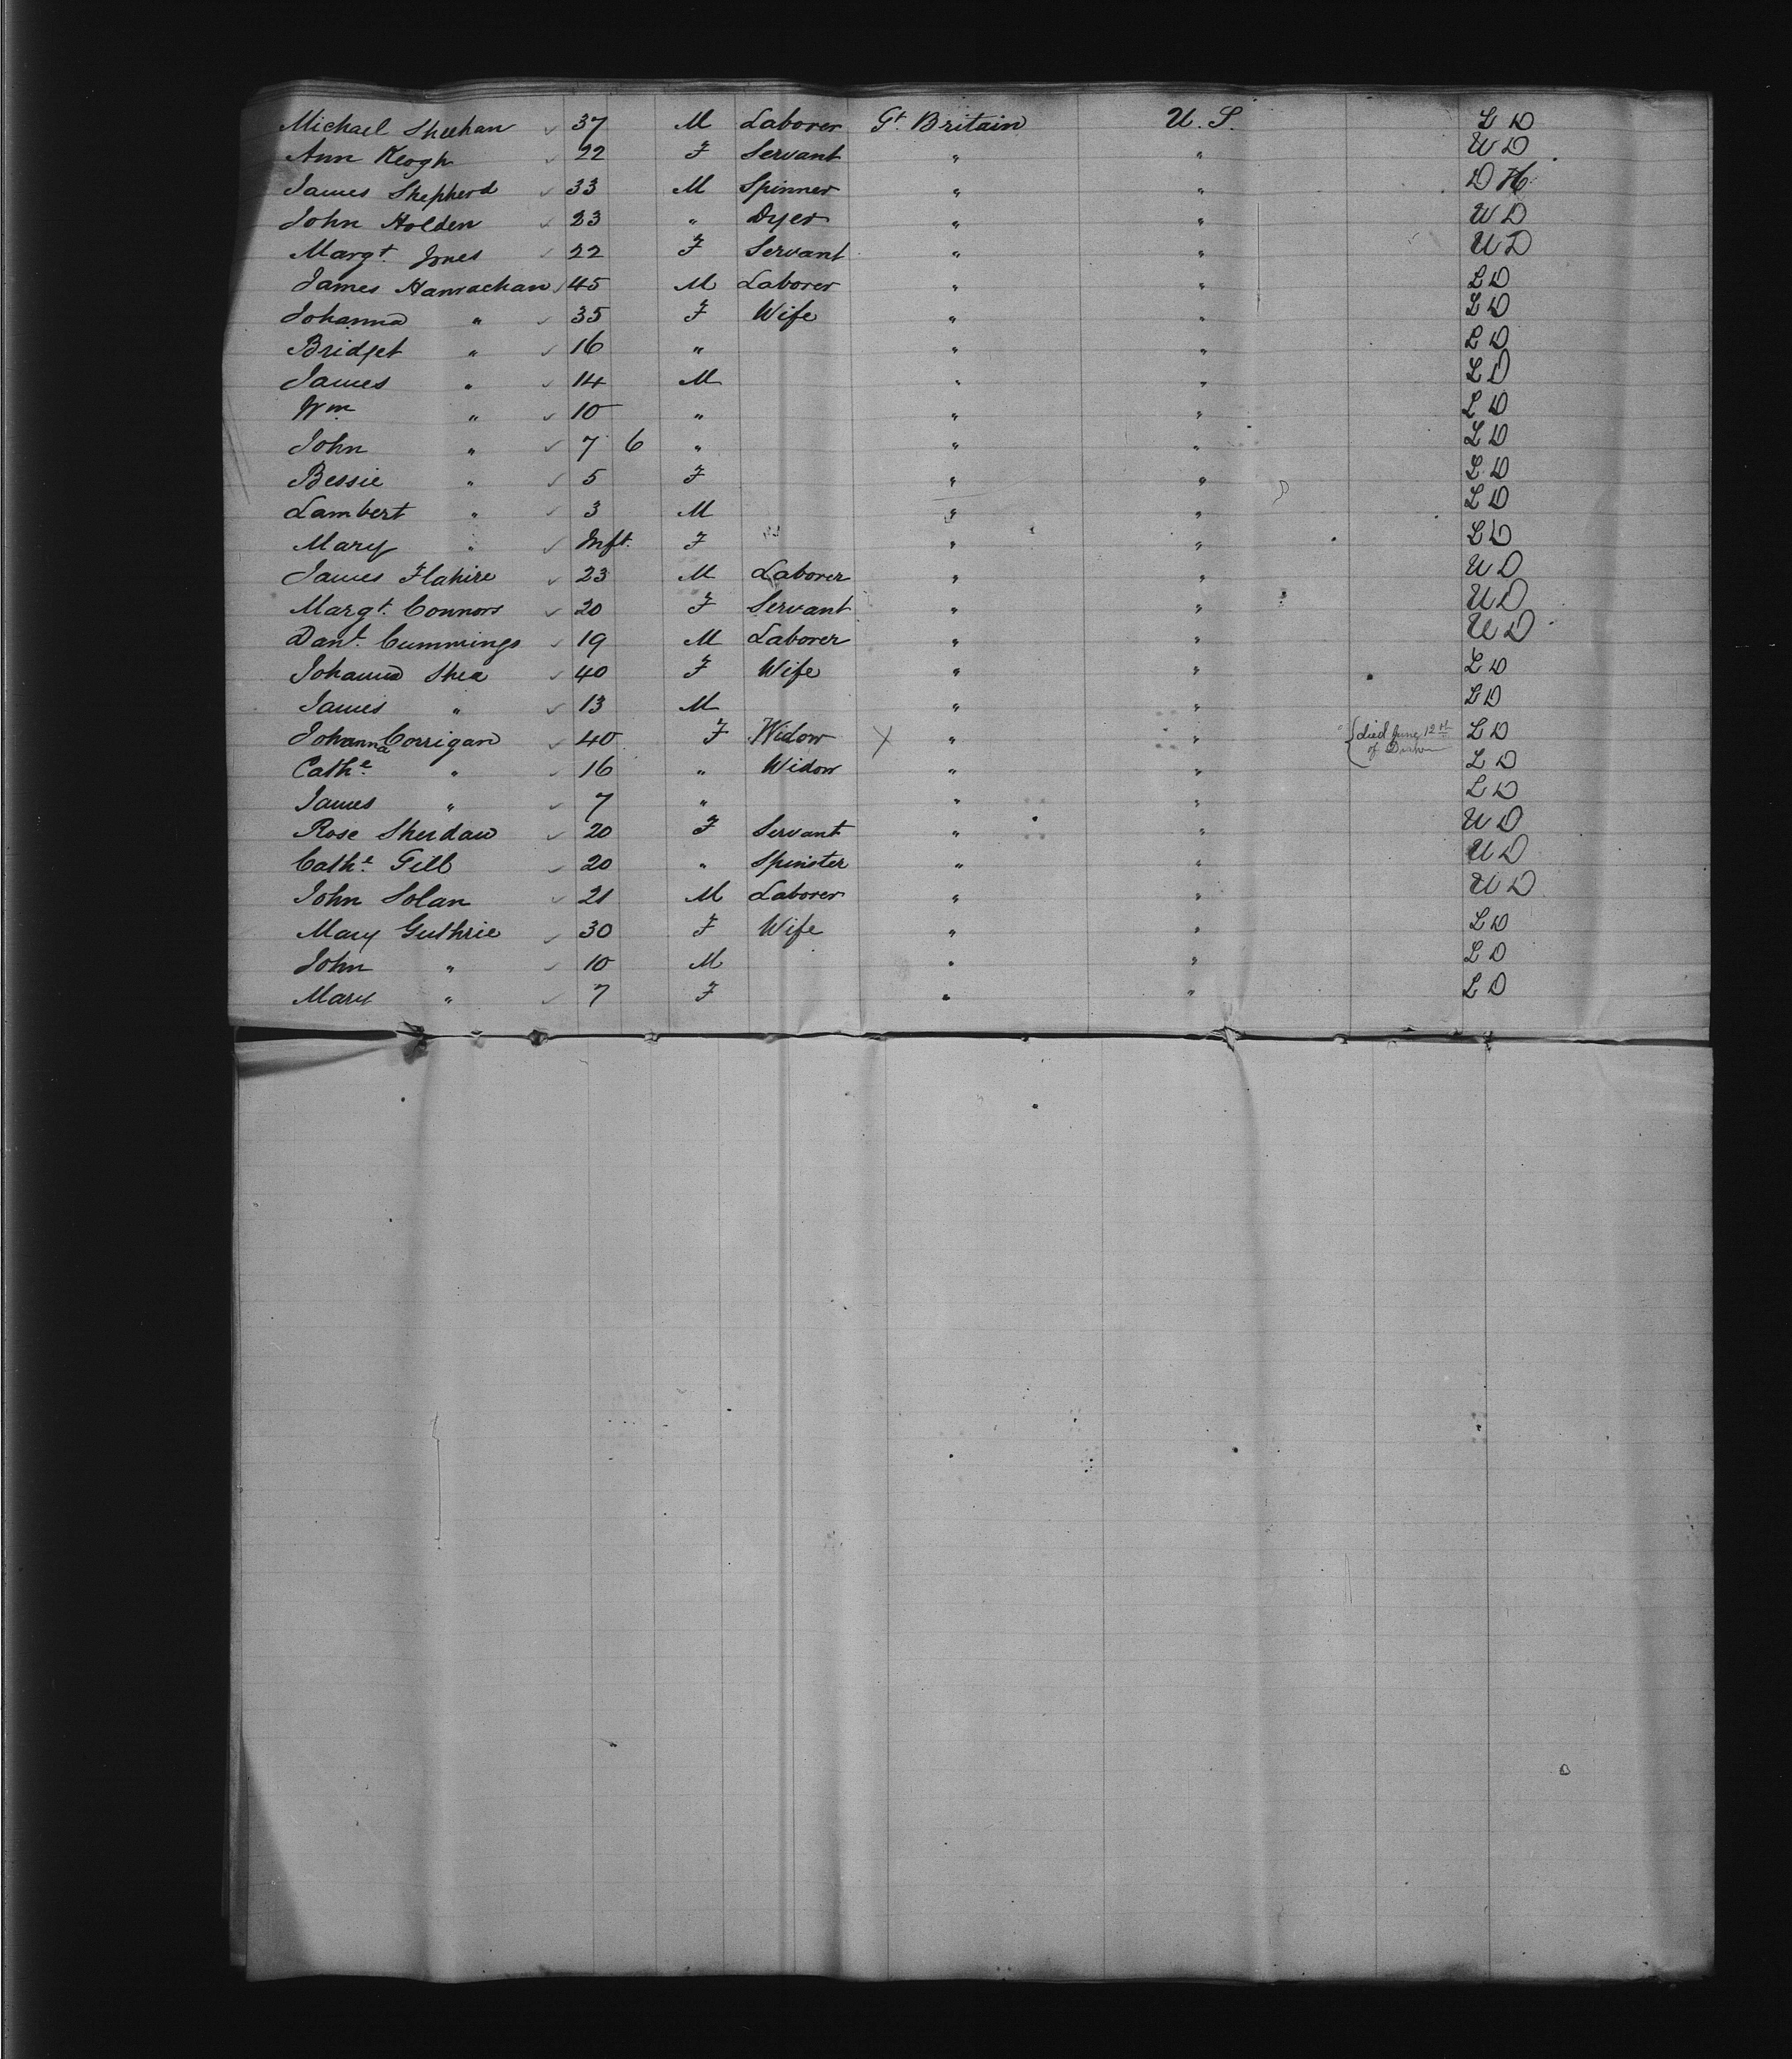 Michael Sheehan ✓ 37 M Laborer Gt. Britain U.S. L D
Ann Keogh ✓ 22 F Servant " " U D
James Shepherd ✓ 33 M Spinner " " D H
John Holden ✓ 23 " Dyer " " U D
Margt. Jones ✓ 22 F Servant " " U D
James Hanrachan ✓ 45 M Laborer " " L D
Johanna " ✓ 35 F Wife " " L D
Bridget " ✓ 16 " " " L D
James " ✓ 14 M " " L D
Wm " ✓ 10 " " " L D
John " ✓ 7 6 " " " L D
Bessie " ✓ 5 F " " L D
Lambert " ✓ 3 M " " L D
Mary " ✓ Inft. F " " L D
James Flahire ✓ 23 M Laborer " " U D
Margt. Connors ✓ 20 F Servant " " U D
Danl. Cummings ✓ 19 M Laborer " " U D
Johanna Shea ✓ 40 F Wife " " L D
James " ✓ 13 M " " L D
Johanna Corrigan ✓ 40 F Widow X " " {died June 12th of L D
Cathe. " ✓ 16 " Widow " " L D
James " ✓ 7 " " " L D
Rose ✓ 20 F Servant " " U D
Cathe. Gill ✓ 20 " Spinster " " U D
John Solan ✓ 21 M Laborer " " U D
Mary Guthrie ✓ 30 F Wife " " L D
John " ✓ 10 M " " L D
Mary " ✓ 7 F " " L D